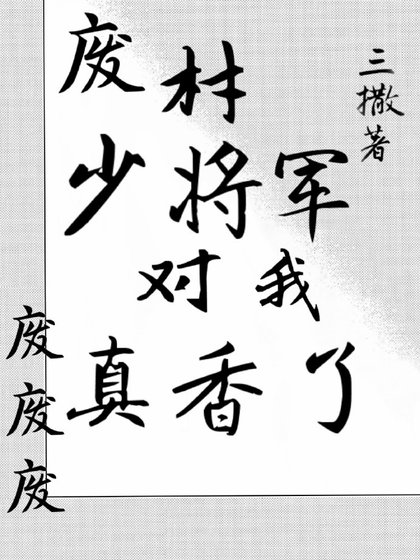 废材
少将军
对我
真香了
三撒著
废
废
废